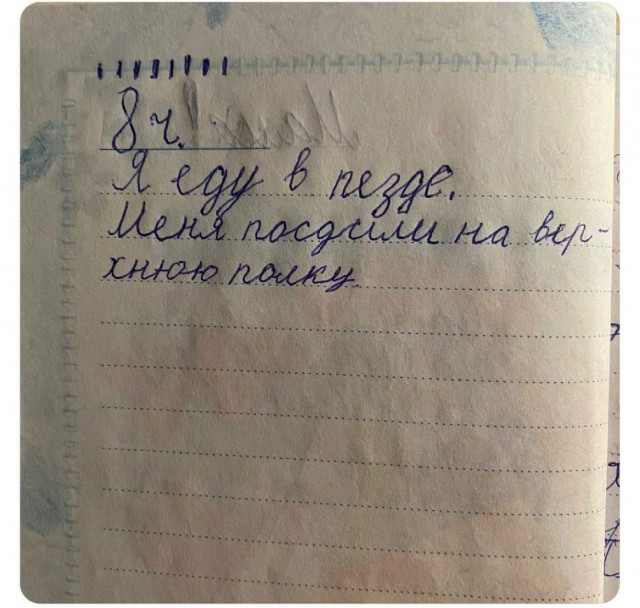 8 ч.
Я еду в пезде.
Меня посдили на вер-
хнюю полку